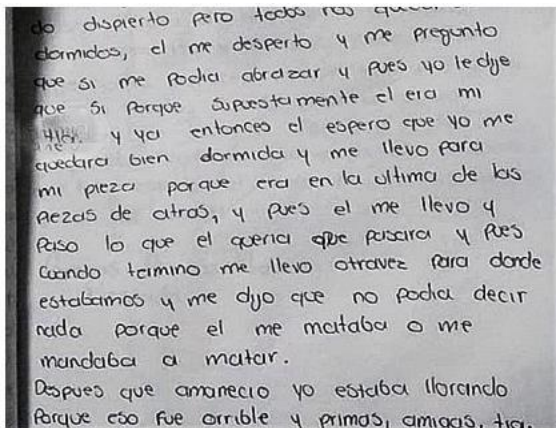 do dispierto pero todos nos
dormidos, el me desperto y me pregunto
que si me podia abrazar y pues yo le dije
que si porque supuestamente el era mi
y ya entonces el espero que yo me
quedara bien dormida y me llevo para
mi pieza porque era en la ultima de las
piezas de atras, y pues el me llevo y
paso lo que el queria que pasara y pues
cuando termino me llevo otravez para donde
estabamos y me dijo que no podia decir
nada porque el me mataba o me
mandaba a matar.
Despues que amanecio yo estaba llorando
Porque eso fue orrible y primas, amigas, tia,